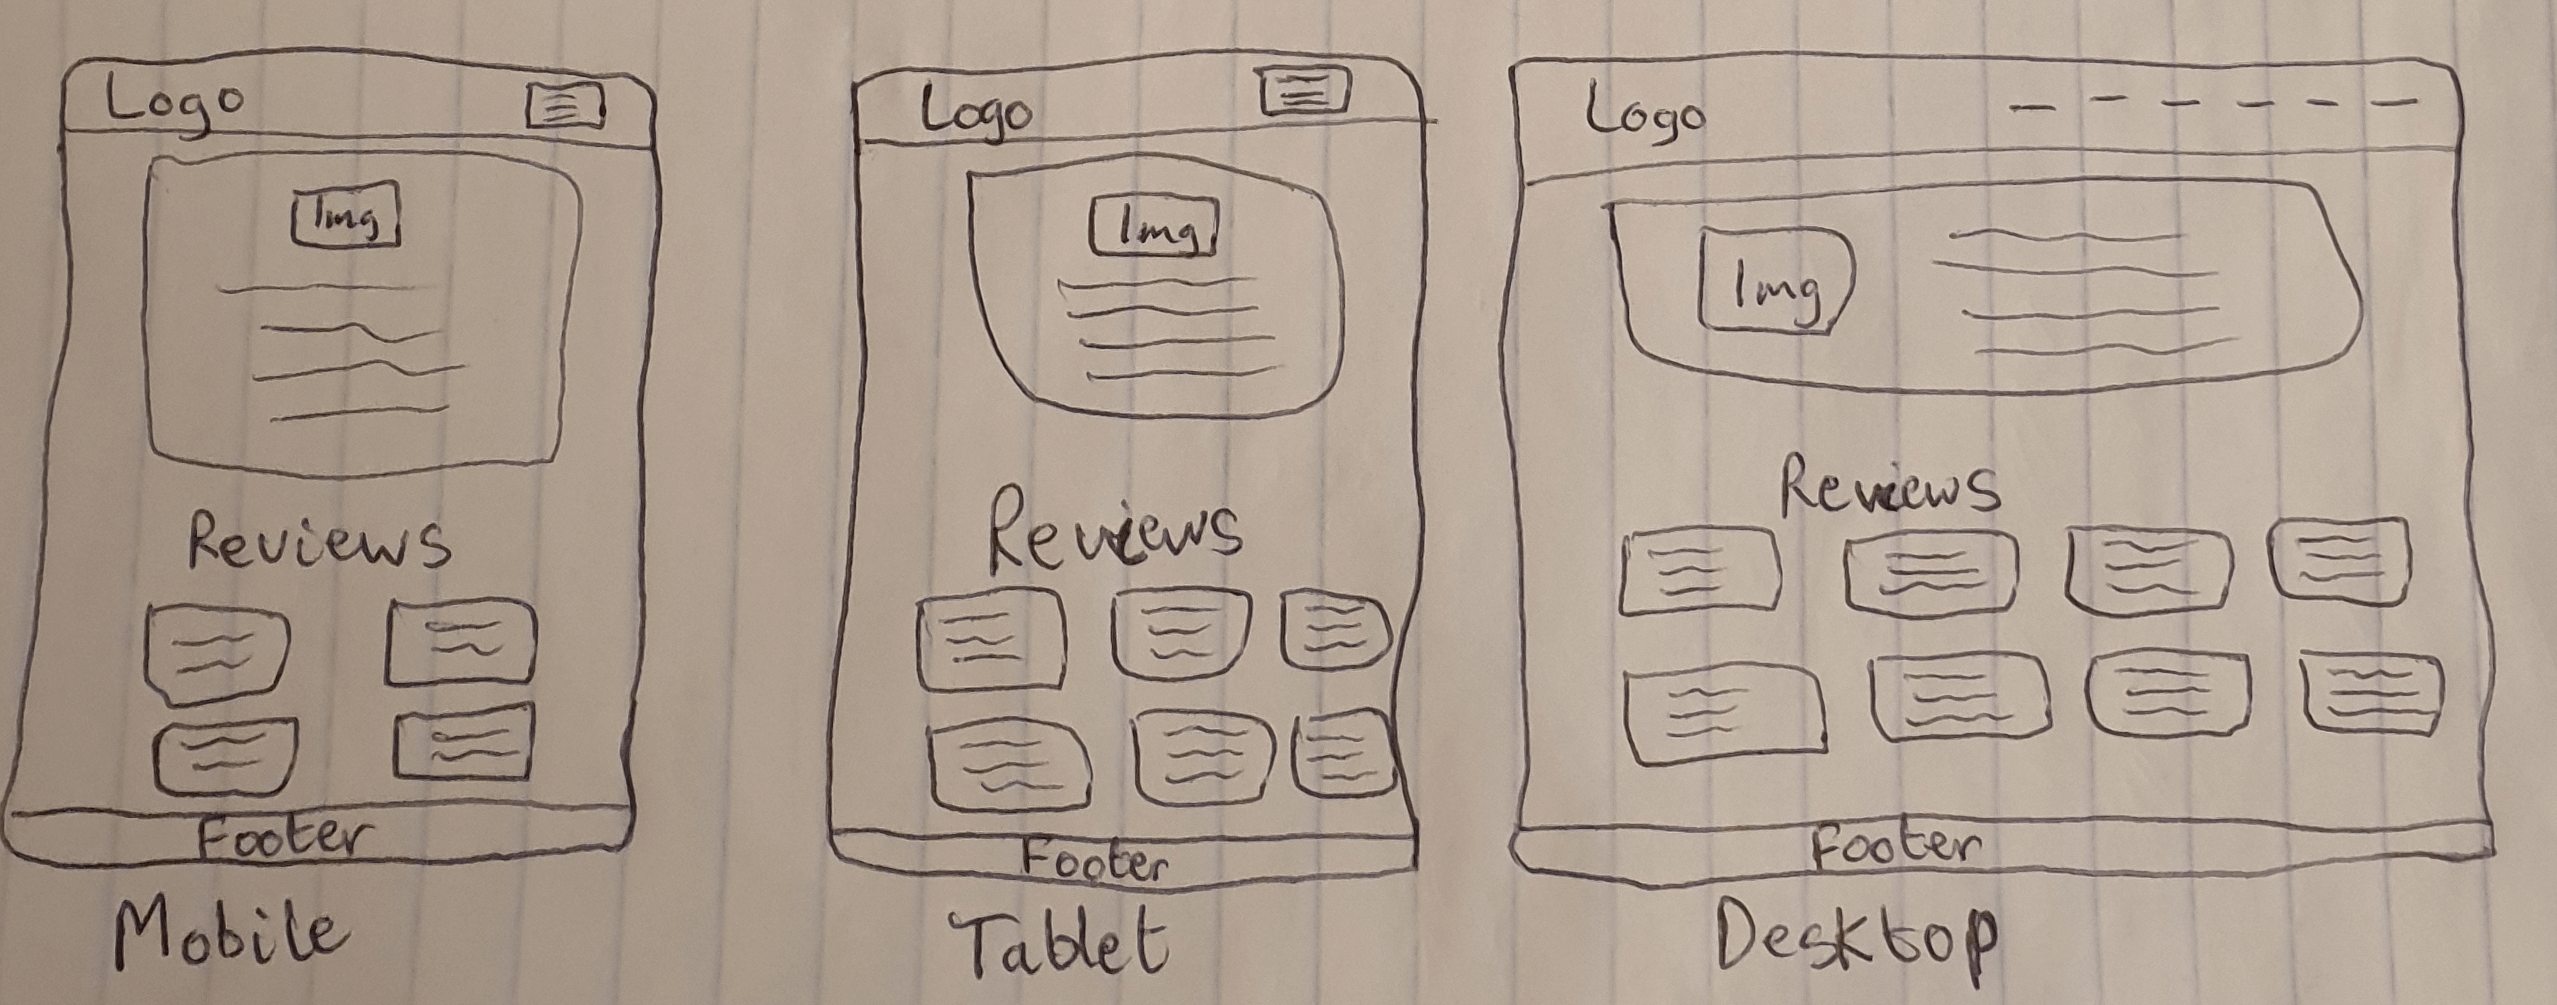 Logo
Img
Reviews
Footer
Mobile
Logo
Img
Reviews
Footer
Tablet
Logo
Img
Reviews
Footer
Desktop